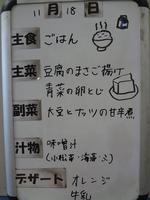 11月18日
主食 ごはん
主菜 豆腐のまさご揚げ
青菜の卵とじ
副菜 大豆とナッツの甘辛煮
汁物 味噌汁
(小松菜・海藻・ふ)
デザート オレンジ
牛乳